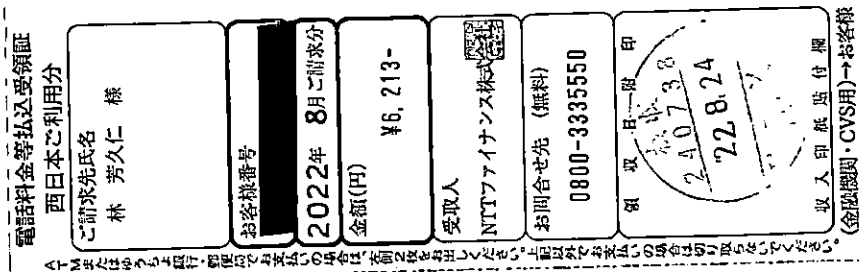 電話料金等払込受領証
西日本ご利用分
ご請求先氏名
林 芳久仁 様
お客様番号
2022年 8月ご請求分
金額(円)
¥6,213-
受取人
NTTファイナンス株式会社
お問合せ先 (無料)
0800-3335550
領収日附印
240738
22.8.24
収入印紙貼付欄
(金融機関・CVS用)→お客様
ATMまたはゆうちょ銀行・郵便局でお支払いの場合は、左側2枚をお出しください。上記以外でお支払いの場合は切り取らないでください。